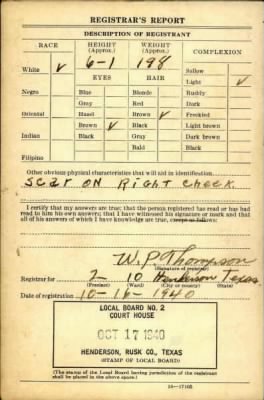 REGISTRAR'S REPORT
DESCRIPTION OF REGISTRANT
RACE HEIGHT (Approx.) WEIGHT (Approx.) COMPLEXION
White ✓ 6-1 198 Sallow
EYES HAIR Light ✓
Negro Blue Blonde Ruddy
Gray Red Dark
Oriental Hazel Brown ✓ Freckled
Brown ✓ Black Light brown
Indian Black Gray Dark brown
Bald Black
Filipino
Other obvious physical characteristics that will aid in identification
Scar on Right Cheek
I certify that my answers are true; that the person registered has read or has had
read to him his own answers; that I have witnessed his signature or mark and that
all of his answers of which I have knowledge are true, except as follows:
W. P. Thompson
(Signature of registrar)
Registrar for 2 10 Henderson Texas
(Precinct) (Ward) (City or county) (State)
Date of registration 10-16-1940
LOCAL BOARD NO. 2
COURT HOUSE
OCT 17 1940
HENDERSON, RUSK CO., TEXAS
(STAMP OF LOCAL BOARD)
(The stamp of the Local Board having jurisdiction of the registrant
shall be placed in the above space.)
16—17105